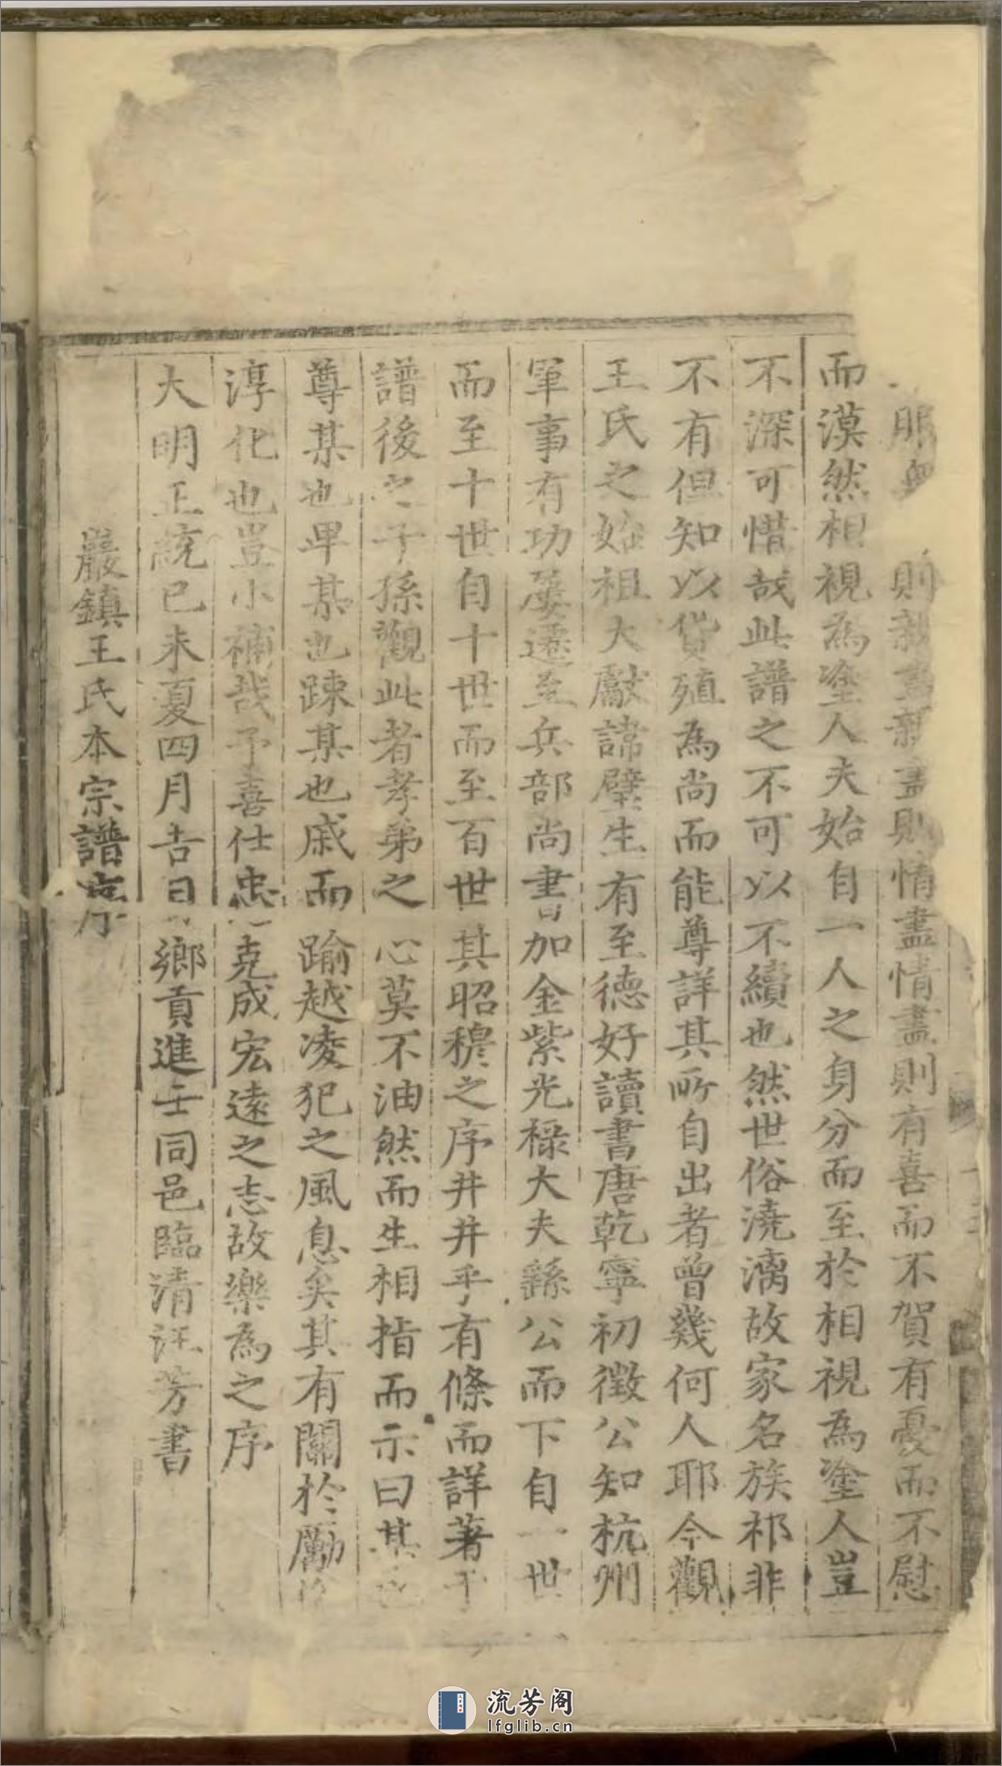 服無 則親盡親盡則情盡情盡則有喜而不賀有憂而不慰
而漠然相視為塗人夫始自一人之身分而至於相視為塗人豈
不深可惜哉此譜之不可以不續也然世俗澆漓故家名族祁非
不有但知以貨殖為尚而能尊詳其所自出者曾幾何人耶今觀
王氏之始祖大獻諱璧生有至德好讀書唐乾寧初徵公知杭州
軍事有功屢遷至兵部尚書加金紫光祿大夫繇公而下自一世
而至十世自十世而至百世其昭穆之序井井乎有條而詳著于
譜後之子孫觀此者孝弟之心莫不油然而生相指而示曰其
尊某也卑某也踈某也戚而踰越凌犯之風息矣其有關於勵
淳化也豈小補哉予喜仕忠克成宏遠之志故樂為之序
大明正統己未夏四月吉日鄉貢進士同邑臨清汪芳書
巖鎮王氏本宗譜序
流芳阁
lfglib.cn